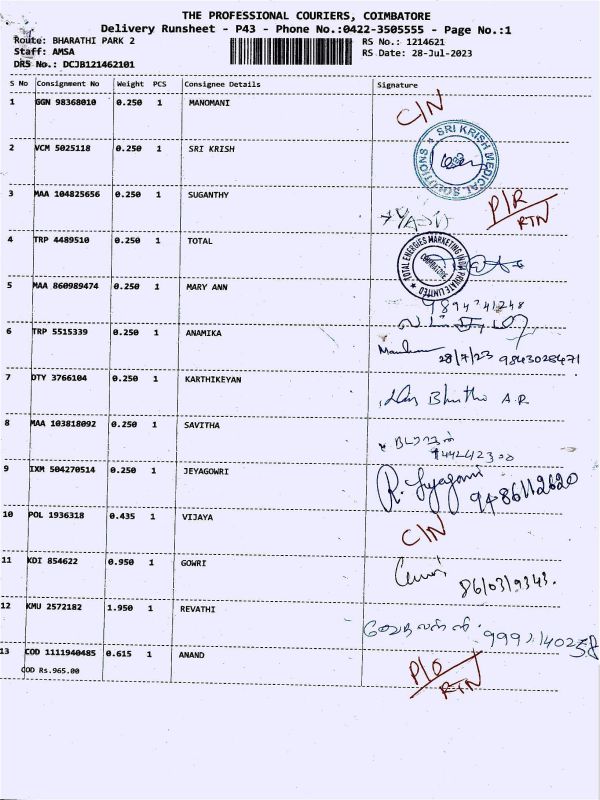 THE PROFESSIONAL COURIERS, COIMBATORE
Delivery Runsheet - P43 - Phone No.:0422-3505555 - Page No.:1
Route: BHARATHI PARK 2 RS No.: 1214621
Staff: AMSA RS Date: 28-Jul-2023
DRS No.: DCJB121462101
S No Consignment No Weight PCS Consignee Details Signature
1 GGN 98368010 0.250 1 MANOMANI C/N
2 VCM 5025118 0.250 1 SRI KRISH SRI KRISH MEDICAL SOLUTIONS
3 MAA 104825656 0.250 1 SUGANTHY P/R RTN
4 TRP 4489510 0.250 1 TOTAL TOTAL ENERGIES MARKETING INDIA PRIVATE LIMITED COIMBATORE
5 MAA 860989474 0.250 1 MARY ANN 9894741248
6 TRP 5515339 0.250 1 ANAMIKA 28/7/23 9843028471
7 DTY 3766104 0.250 1 KARTHIKEYAN A.R
8 MAA 103818092 0.250 1 SAVITHA
9 IXM 504270514 0.250 1 JEYAGOWRI R. Jeyagowri 9486112620
10 POL 1936318 0.435 1 VIJAYA C/N
11 KDI 854622 0.950 1 GOWRI
12 KMU 2572182 1.950 1 REVATHI
13 COD 1111940485 0.615 1 ANAND P/O RTN
COD Rs.965.00